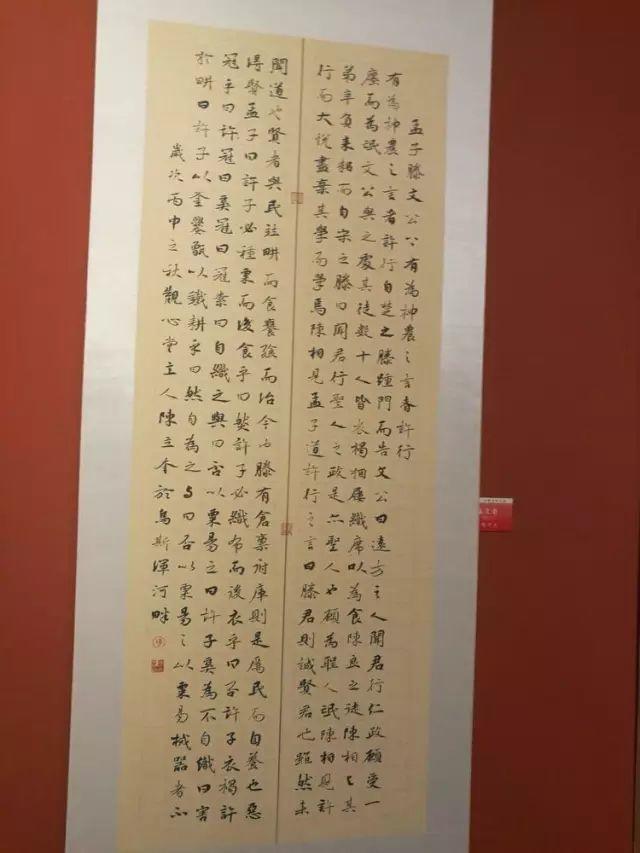 孟子滕文公有為神農之言者許行
有為神農之言者許行自楚之滕踵門而告文公曰遠方之人聞君行仁政願受一
廛而為氓文公與之處其徒數十人皆衣褐捆屨織席以為食陳良之徒陳相與其
弟辛負耒耜而自宋之滕曰聞君行聖人之政是亦聖人也願為聖人氓陳相見許
行而大悅盡棄其學而學焉陳相見孟子道許行之言曰滕君則誠賢君也雖然未
聞道也賢者與民竝畊而食饔飧而治今也滕有倉廩府庫則是厲民而自養也惡
得賢孟子曰許子必種粟而後食乎曰然許子必織布而後衣乎曰否許子衣褐許
冠乎曰許冠曰奚冠曰冠素曰自織之與曰否以粟易之曰許子奚為不自織曰害
於畊曰許子以釜爨甑以鐵耕乎曰然自為之與曰否以粟易之以粟易械器者不
歲次丙申之秋觀心堂主人陳立本於烏斯渾河畔